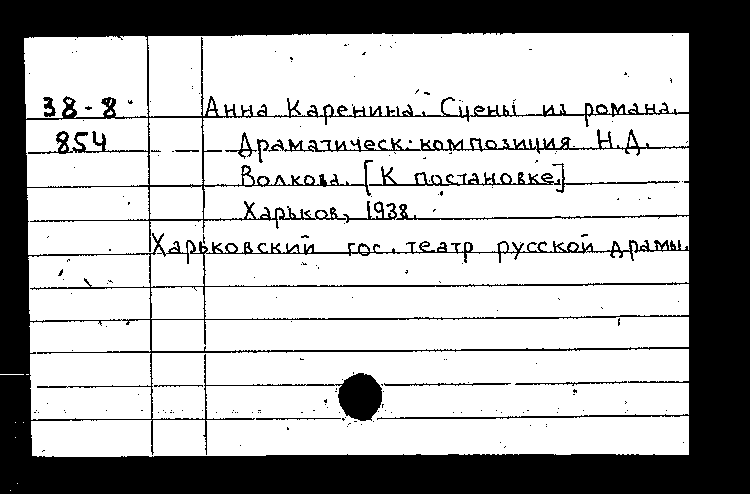 38-8 Анна Каренина. Сцены из романа.
854 Драматическ. композиция Н.Д.
Волкова. [К постановке.]
Харьков, 1938.
Харьковский гос. театр русской драмы.